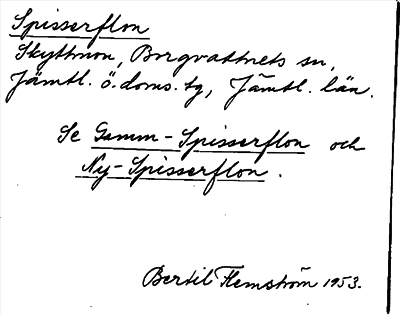 Spisserflon
Skyttmon, Borgvattnets sn,
Jämtl. ö. doms. tg, Jämtl. län.
Se Gamm-Spisserflon och
Ny-Spisserflon.
Bertil Flemström 1953.